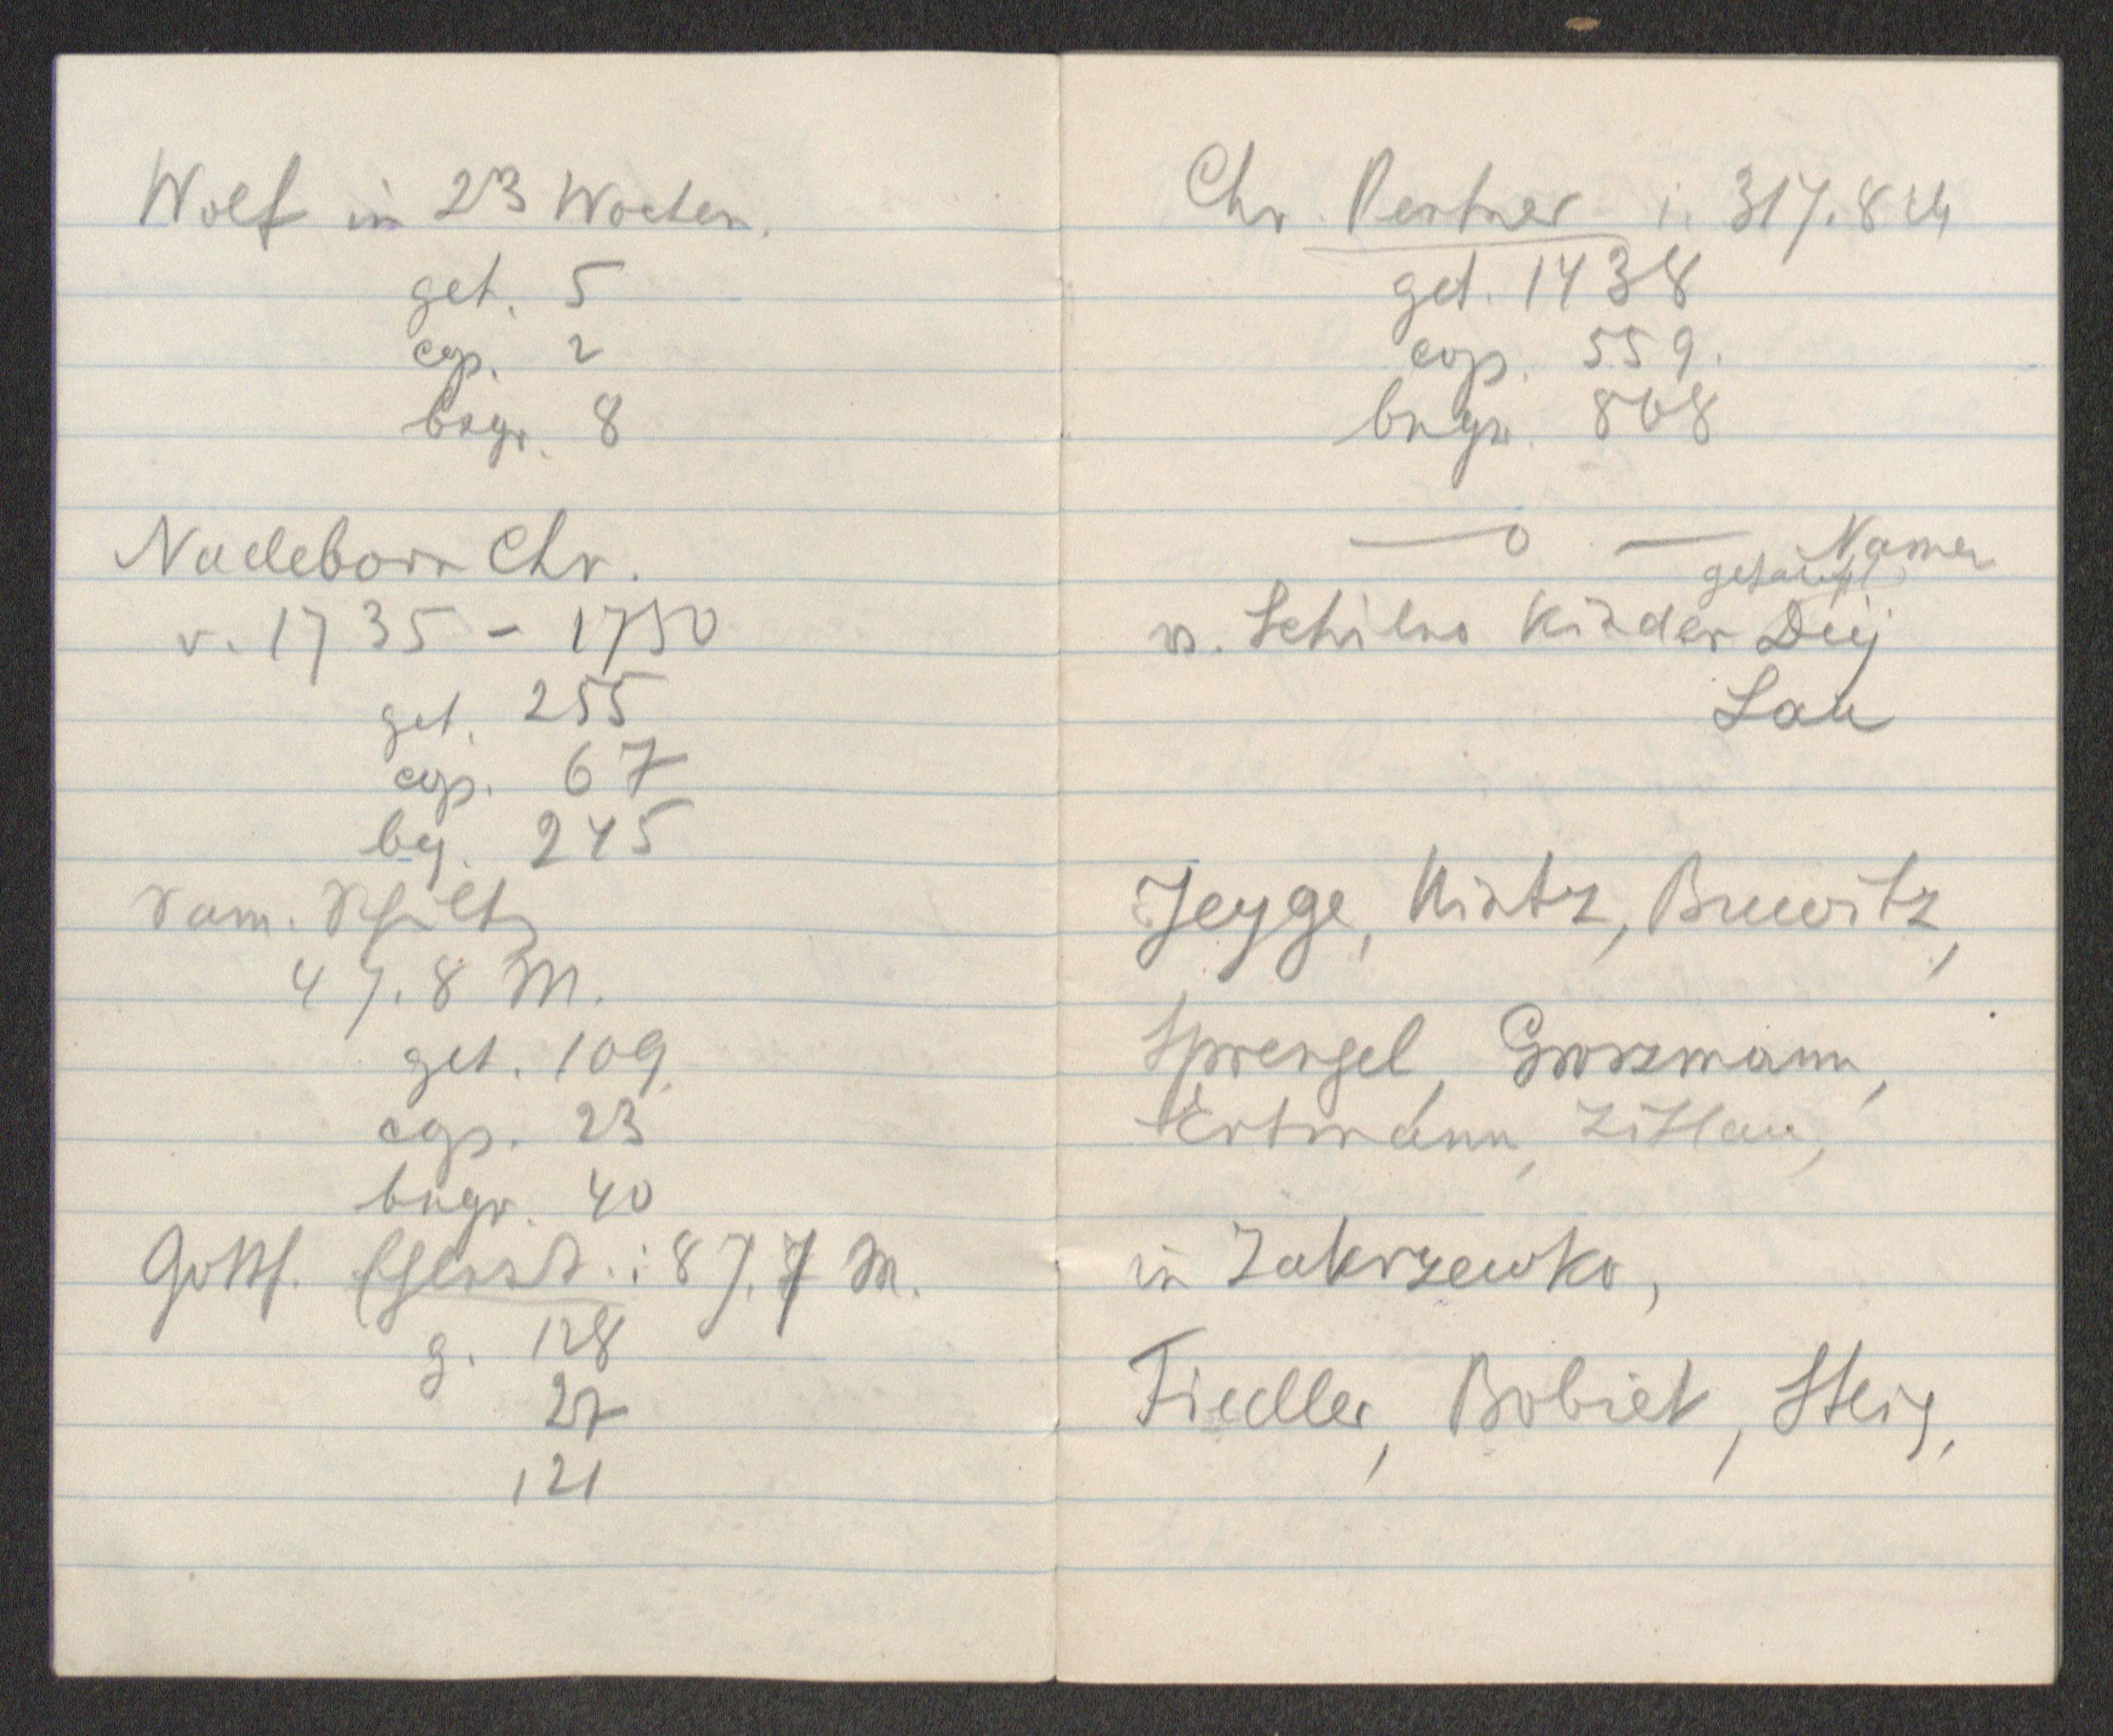 Wolf in 23 Wochen.
get. 5
cop. 2
begr. 8
Nadeborn Chr.
v. 1735 - 1750
get. 255
cop. 67
bg. 245
Sam.
4 J. 8 M.
get. 109
cop. 23
begr. 40
Gottf. i 8 J. 7 M.
g. 128
27
121
Chr. Pertner i. 31 J. 8 M
get. 1438
cop. 559.
begr. 808
— o —
Namen
getauft
v. Schilno Kinder Dey
Lau
Jeyge, Kintz, Buwitz,
Sprengel, Grossmann,
Ertmann, Zittlau,
in Zakrzewko,
Fiedler, Bobiet, Steig,